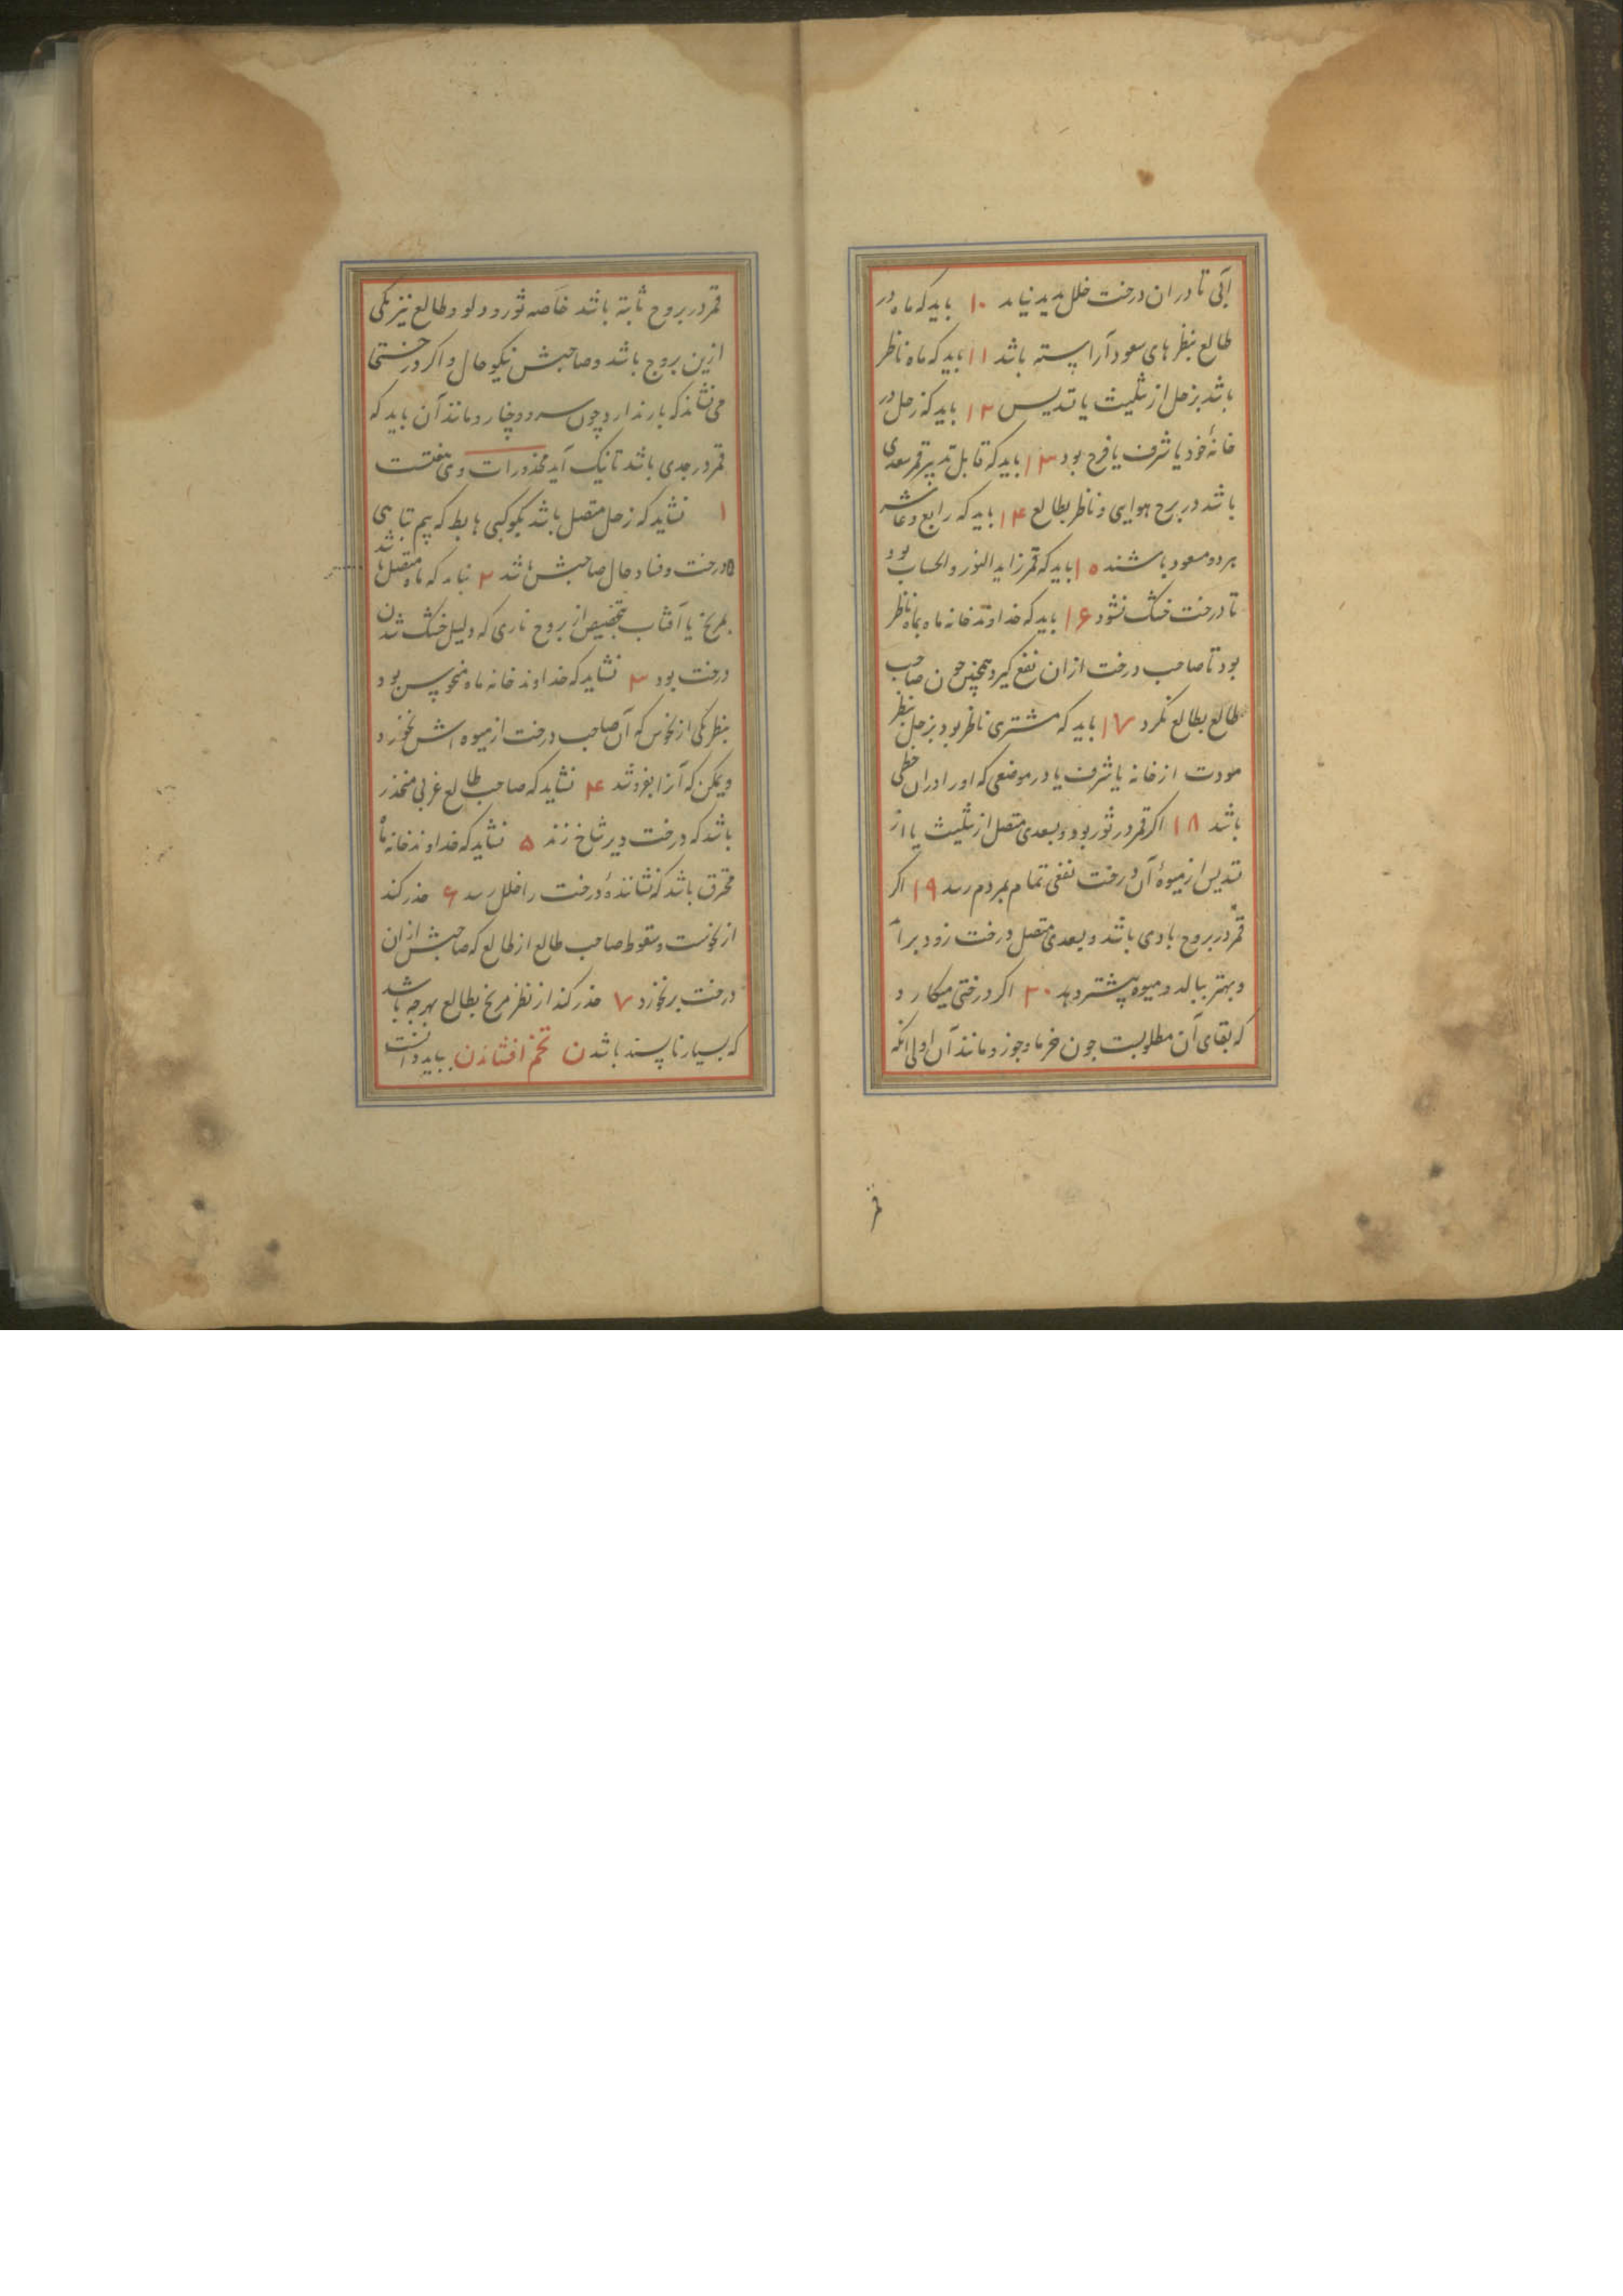 آبی تا در ان درخت خلل پدید نیاید ۱۰ باید که ماه در
طالع بنظرهای سعود آراسته باشد ۱۱ باید که ماه ناظر
باشد بزحل از تثلیث یا تسدیس ۱۲ باید که زحل در
خانهٔ خود یا شرف یا فرح بود ۱۳ باید که قابل تدبیر قمر سعدی
باشد در برج هوایی و ناظر بطالع ۱۴ باید که رابع و عاشر
هر دو مسعود باشند ۱۵ باید که قمر زاید النور والحساب بود
تا درخت خشک نشود ۱۶ باید که خداوند خانه ماه بماه ناظر
بود تا صاحب درخت ازان نفع گیرد همچنین چون صاحب
طالع بطالع نکرد ۱۷ باید که مشتری ناظر بود بزحل بنظر
مودت از خانه یا شرف یا در موضعی که اورا دران حظی
باشد ۱۸ اکر قمر در ثور بود و بسعدی متصل از تثلیث یا از
تسدیس از میوهٔ آن درخت نفعی تمام بمردم رسد ۱۹ اکر
قمر در بروج بادی باشد و بسعدی متصل درخت زود برآید
و بهتر ببالد و میوه پیشتر دهد ۲۰ اکر درختی میکارد
که بقای آن مطلوبست جون خرما و جوز و مانند آن اولی آنکه
قمر
قمر در بروج ثابته باشد خاصه ثور و دلو و طالع نیز یکی
ازین بروج باشد و صاحبش نیکو حال و اکر درختها
می نشاند که بار ندارد چون سرو و چنار و مانند آن باید که
قمر در جدی باشد تا نیک آید محذورات وی هفتست
۱ نشاید که زحل متصل باشد بکوکبی هابط که بیم تباهی
درخت و فساد حال صاحبش باشد ۲ نباید که ماه متصل باشد
بمریخ یا آفتاب بتخصیص از بروج ناری که دلیل خشک شدن
درخت بود ۳ نشاید که خداوند خانه ماه منحوس بود
بنظر یکی از نحوس که آن صاحب درخت از میوه اش نخورد
و یمکن که آنرا بفروشد ۴ نشاید که صاحب طالع غربی منحدر
باشد که درخت دیر شاخ زند ۵ نشاید که خداوند خانه ماه
محترق باشد که نشانندهٔ درخت را خلل رسد ۶ حذر کند
از نحوست و سقوط صاحب طالع از طالع که صاحبش از ان
درخت بر نخورد ۷ حذر کند از نظر مریخ بطالع بهرجه باشد
که بسیار ناپسند باشد ن تخم افشاندن بباید دانست